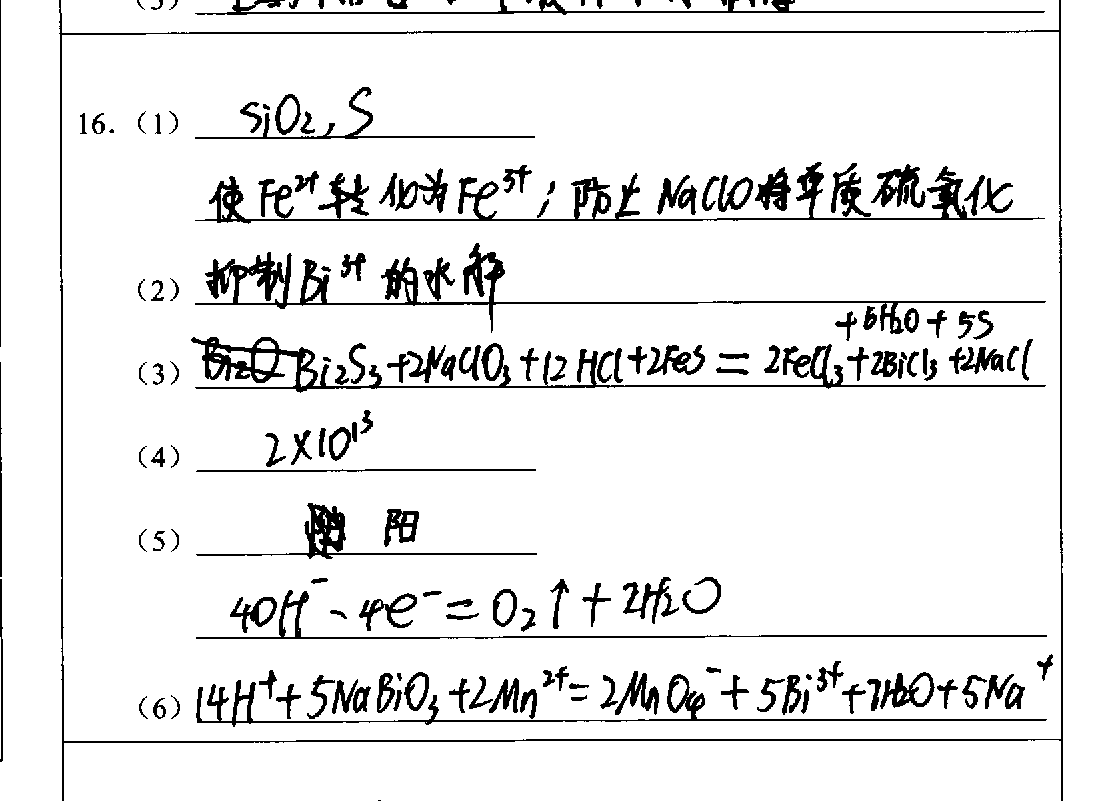 (3)
16. (1) SiO₂, S
使Fe²⁺转化为Fe³⁺; 防止NaClO将单质硫氧化
(2) 抑制Bi³⁺的水解
+6H₂O+5S
(3) Bi₂S₃+2NaClO₃+12HCl+2FeS=2FeCl₃+2BiCl₃+2NaCl
(4) 2×10¹³
(5) 阳
4OH⁻-4e⁻=O₂↑+2H₂O
(6) 14H⁺+5NaBiO₃+2Mn²⁺=2MnO₄⁻+5Bi³⁺+7H₂O+5Na⁺